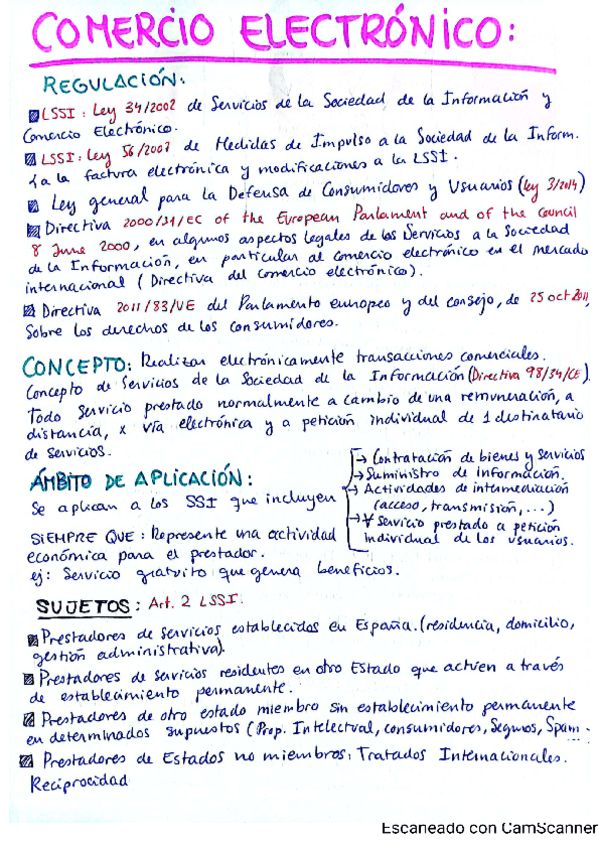 COMERCIO ELECTRÓNICO:
REGULACIÓN:
LSSI: Ley 34/2002 de Servicios de la Sociedad de la Información y
Comercio Electrónico.
LSSI: Ley 56/2007 de Medidas de Impulso a la Sociedad de la Inform.
a la factura electrónica y modificaciones a la LSSI.
Ley general para la Defensa de Consumidores y Usuarios (ley 3/2014)
Directiva 2000/31/EC of the European Parlament and of the Council
8 June 2000, en algunos aspectos legales de los Servicios a la Sociedad
de la Información, en particular al comercio electrónico en el mercado
internacional (Directiva del comercio electrónico).
Directiva 2011/83/UE del Parlamento europeo y del consejo, de 25 oct 2011,
Sobre los derechos de los consumidores.
CONCEPTO: Realizar electrónicamente transacciones comerciales.
Concepto de Servicios de la Sociedad de la Información (Directiva 98/34/CE).
Todo Servicio prestado normalmente a cambio de una remuneración, a
distancia, x vía electrónica y a petición individual de 1 destinatario
de servicios.
ÁMBITO DE APLICACIÓN:
Se aplican a los SSI que incluyen
→ Contratación de bienes y servicios
→ Suministro de información.
→ Actividades de intermediación
(acceso, transmisión,...)
→ ∀ Servicio prestado a petición
individual de los usuarios.
SIEMPRE QUE: Represente una actividad
económica para el prestador.
ej: Servicio gratuito que genera beneficios.
SUJETOS: Art. 2 LSSI.
Prestadores de servicios establecidos en España. (residencia, domicilio,
gestión administrativa).
Prestadores de servicios residentes en otro Estado que actúen a través
de establecimiento permanente.
Prestadores de otro estado miembro sin establecimiento permanente
en determinados supuestos (Prop. Intelectual, consumidores, Seguros, Spam.
Prestadores de Estados no miembros: Tratados Internacionales.
Reciprocidad
Escaneado con CamScanner